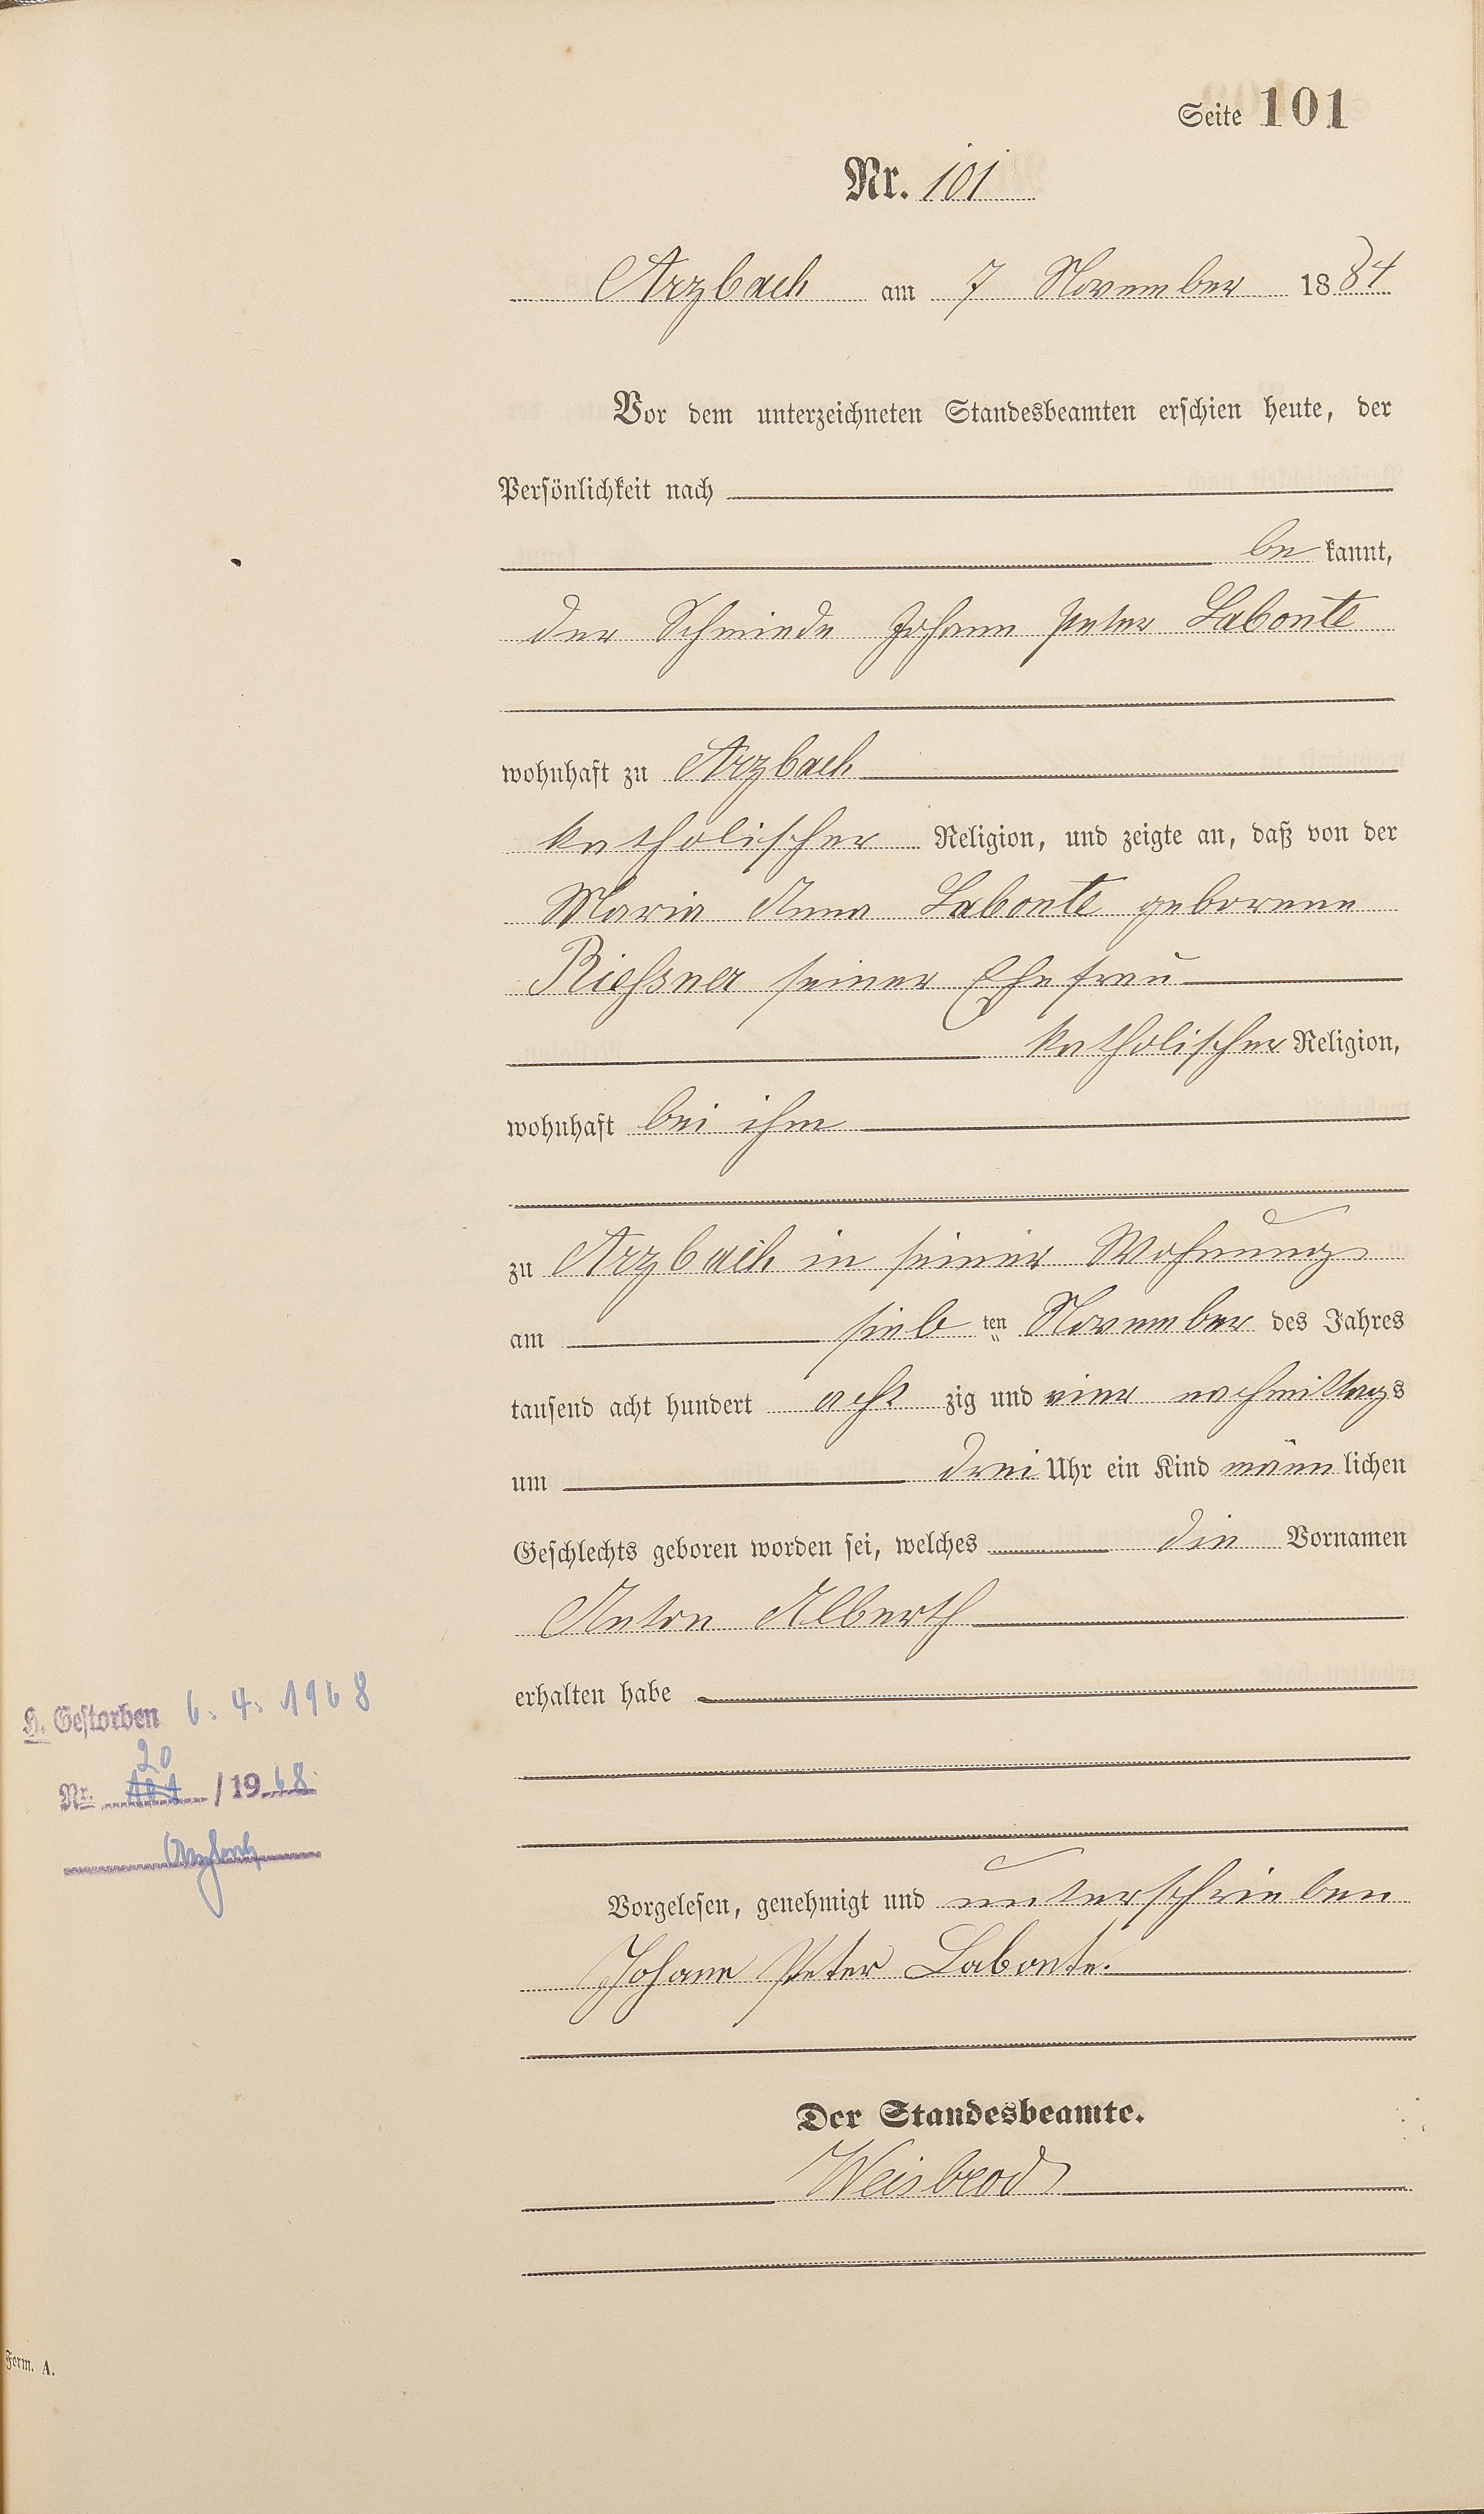 Seite 101
Nr. 101
Arzbach am 7 November 1884
Vor dem unterzeichneten Standesbeamten erschien heute, der
Persönlichkeit nach
be kannt,
der Schmiede Johann Peter Labonte
wohnhaft zu Arzbach
katholischer Religion, und zeigte an, daß von der
Maria Anna Labonte geborene
Riessner seiner Ehefrau
katholischer Religion,
wohnhaft bei ihm
zu Arzbach in seiner Wohnung
am sieb ten November des Jahres
tausend acht hundert acht zig und vier nachmittags
um drei Uhr ein Kind männlichen
Geschlechts geboren worden sei, welches die Vornamen
Anton Alberth
erhalten habe
H. Gestorben 6. 4. 1968
20
Nr. 101 / 1968
Arzbach
Vorgelesen, genehmigt und unterschrieben
Johann Peter Labonte.
Der Standesbeamte.
Weisbrod
Form. A.